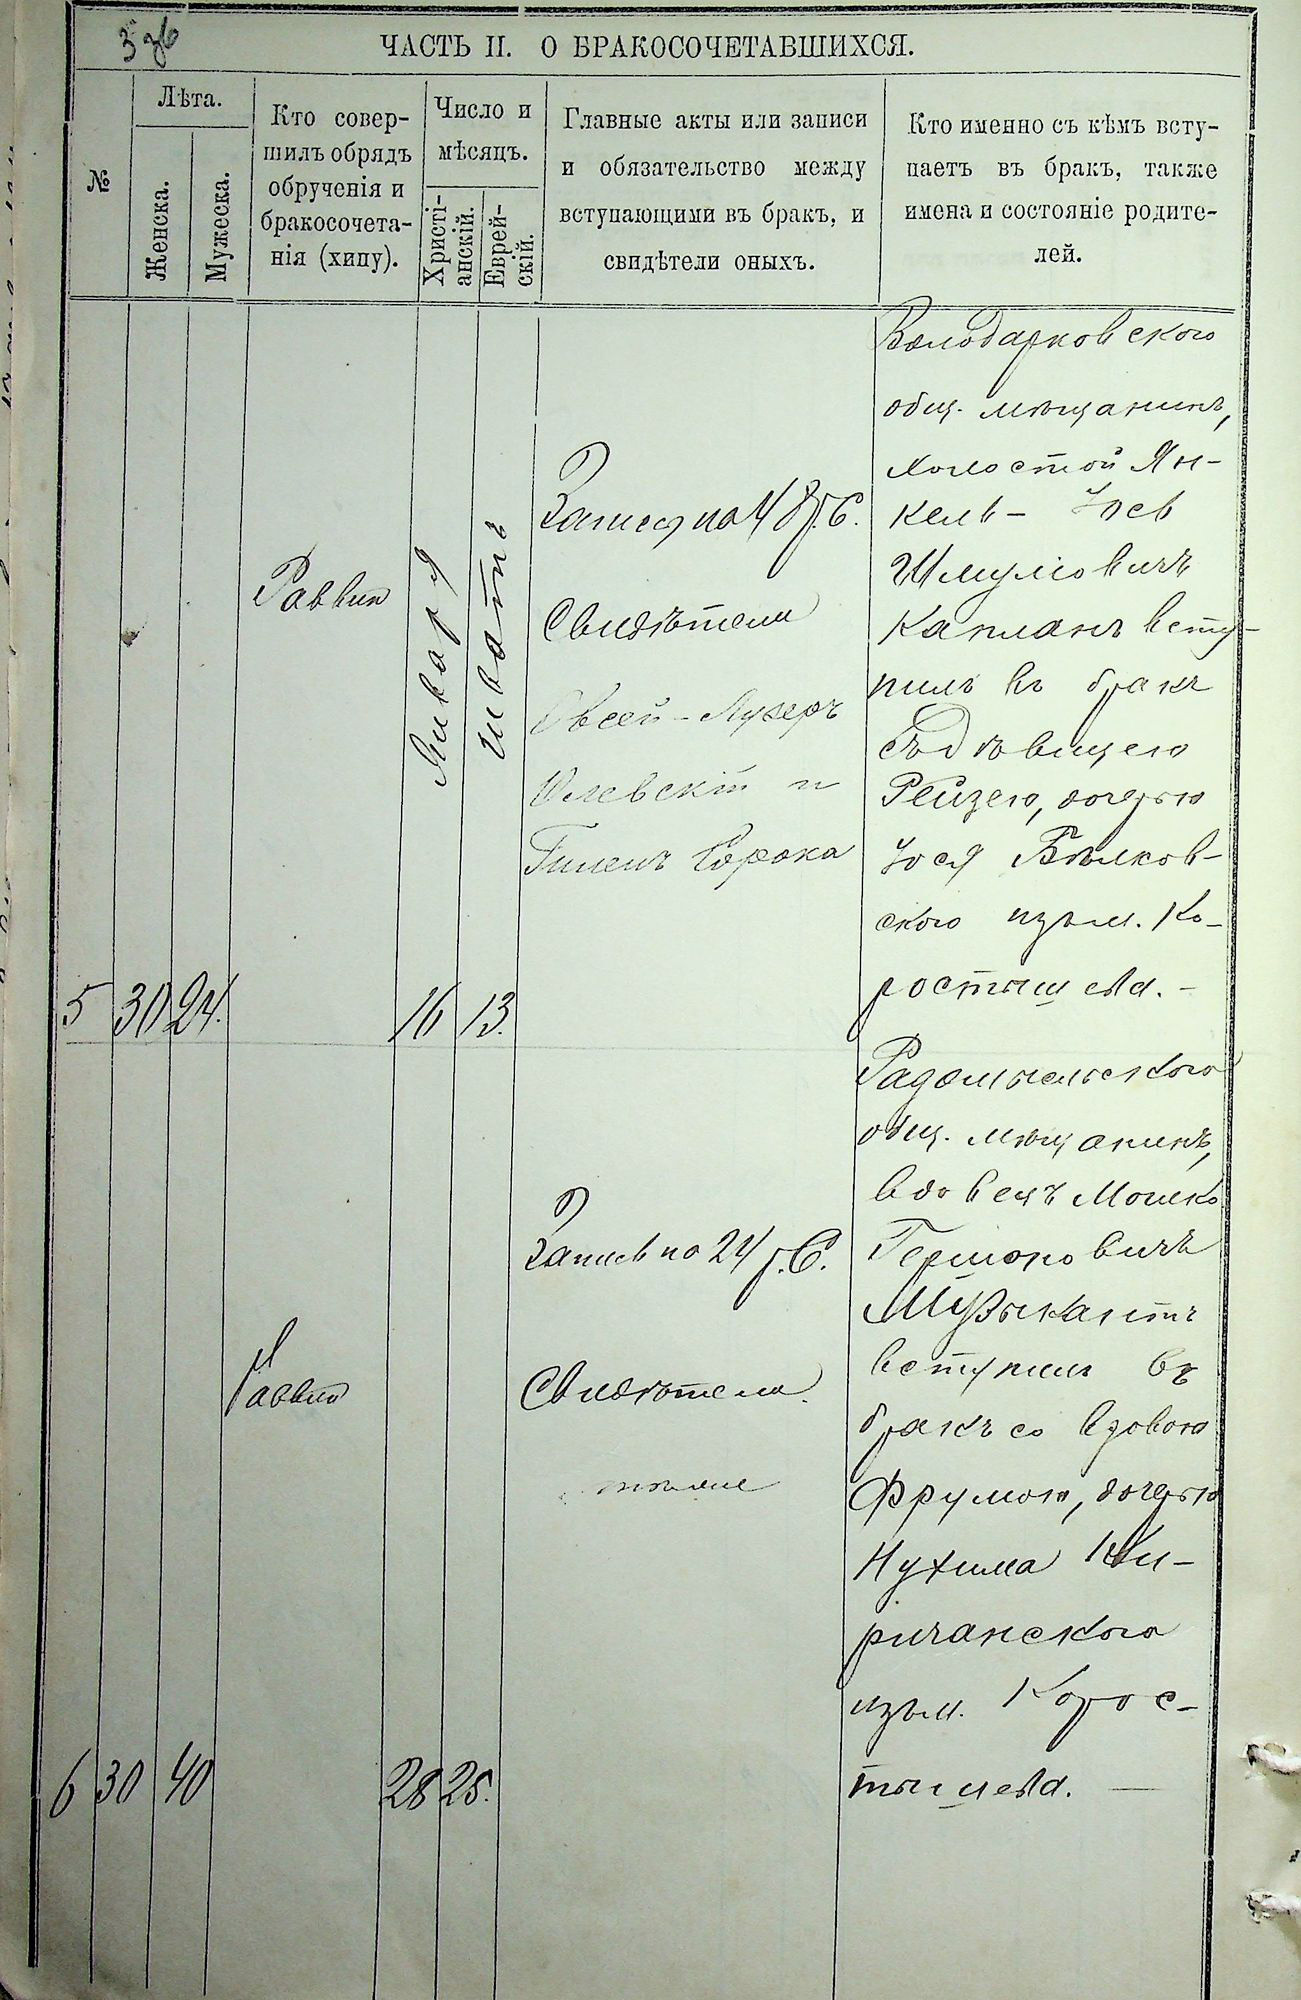 ЧАСТЬ II. О БРАКОСОЧЕТАВШИХСЯ.
№
Лѣта.
Женска.
Мужеска.
Кто совер-
шилъ обрядъ
обрученія и
бракосочета-
нія (хипу).
Число и
мѣсяцъ.
Христі-
анскій.
Еврей-
скій.
Главные акты или записи
и обязательство между
вступающими въ бракъ, и
свидѣтели оныхъ.
Кто именно съ кѣмъ всту-
паетъ въ бракъ, также
имена и состояніе родите-
лей.
5
30
24.
Раввин
Января
16
Шватъ
13.
Запись на 48 р. С.
Свидѣтели
Овсей-Лузеръ
и
Сорока
Володарковского
общ. мѣщанинъ,
холостой Ян-
кель- Іосъ
Шмулювичъ
Капланъ всту-
пилъ въ бракъ
съ дѣвицею
Рейзею, дочерью
Іося Бѣлков-
ского изъ м. Ко-
ростышева. -
6
30
40
Раввин
28
25.
Запись на 24 р. С.
Свидѣтели.
тѣже
Радомысльского
общ. мѣщанинъ,
вдовецъ Мошко
Гершоновичъ
Музыкантъ
вступилъ въ
бракъ со вдовою
Фрумою, дочерью
Нухима Ки-
ричанского
изъ м. Корос-
тышева. —